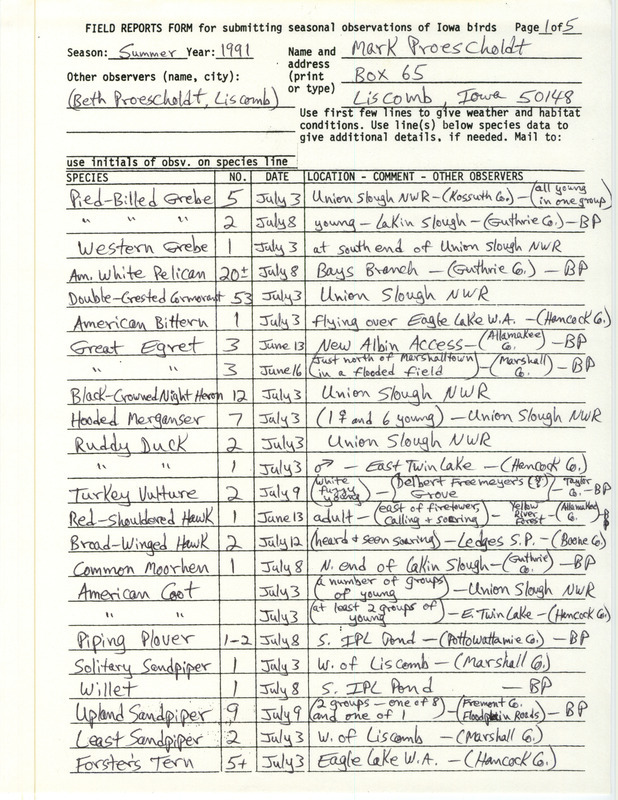 FIELD REPORTS FORM for submitting seasonal observations of Iowa birds Page 1 of 5
Season: Summer Year: 1991 Name and address (print or type) Mark Proescholdt
Box 65
Liscomb, Iowa 50148
Other observers (name, city):
(Beth Proescholdt, Liscomb)
Use first few lines to give weather and habitat
conditions. Use line(s) below species data to
give additional details, if needed. Mail to:
use initials of obsv. on species line
SPECIES NO. DATE LOCATION - COMMENT - OTHER OBSERVERS
Pied-Billed Grebe 5 July 3 Union Slough NWR - (Kossuth Co.) - (all young in one group)
" " 2 July 8 young - Lakin Slough - (Guthrie Co.) - BP
Western Grebe 1 July 3 at south end of Union Slough NWR
Am. White Pelican 20± July 8 Bays Branch - (Guthrie Co.) - BP
Double-Crested Cormorant 53 July 3 Union Slough NWR
American Bittern 1 July 3 flying over Eagle Lake W.A. - (Hancock Co.)
Great Egret 3 June 13 New Albin Access - (Allamakee Co.) - BP
" " 3 June 16 (just north of Marshalltown in a flooded field) - (Marshall Co.) - BP
Black-Crowned Night Heron 12 July 3 Union Slough NWR
Hooded Merganser 7 July 3 (1♀ and 6 young) - Union Slough NWR
Ruddy Duck 2 July 3 Union Slough NWR
" " 1 July 3 ♂ - East Twin Lake - (Hancock Co.)
Turkey Vulture 2 July 9 (white fuzzy young) - (Delbert Freemeyers (?) Grove) - (Taylor Co.) - BP
Red-Shouldered Hawk 1 June 13 adult - (east of firetower, calling + soaring) - (Yellow River Forest) - (Allamakee Co.) - BP
Broad-Winged Hawk 2 July 12 (heard & seen soaring) - Ledges S.P. - (Boone Co.)
Common Moorhen 1 July 8 N. end of Lakin Slough - (Guthrie Co.) - BP
American Coot July 3 (a number of groups of young) - Union Slough NWR
" " July 3 (at least 2 groups of young) - E. Twin Lake - (Hancock Co.)
Piping Plover 1-2 July 8 S. IPL Pond - (Pottowattamie Co.) - BP
Solitary Sandpiper 1 July 3 W. of Liscomb - (Marshall Co.)
Willet 1 July 8 S. IPL Pond - BP
Upland Sandpiper 9 July 9 (2 groups - one of 8 and one of 1) - (Fremont Co. Floodplain Roads) - BP
Least Sandpiper 2 July 3 W. of Liscomb - (Marshall Co.)
Forster's Tern 5+ July 3 Eagle Lake W.A. - (Hancock Co.)